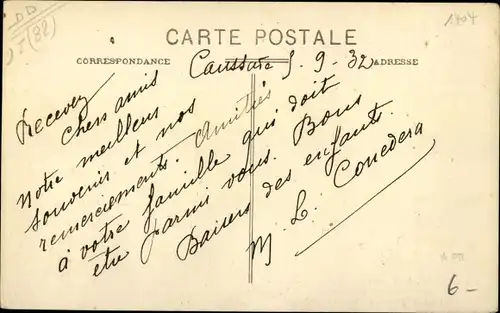 DD
I (82)
1404
CARTE POSTALE
CORRESPONDANCE
ADRESSE
5-9-32
Recevez
chers amis
Notre meilleur
souvenir et nos
remerciements. Amitiés
à votre famille qui doit
être parmi vous. Bons
Baisers des enfants.
M. L. Conedera
6-